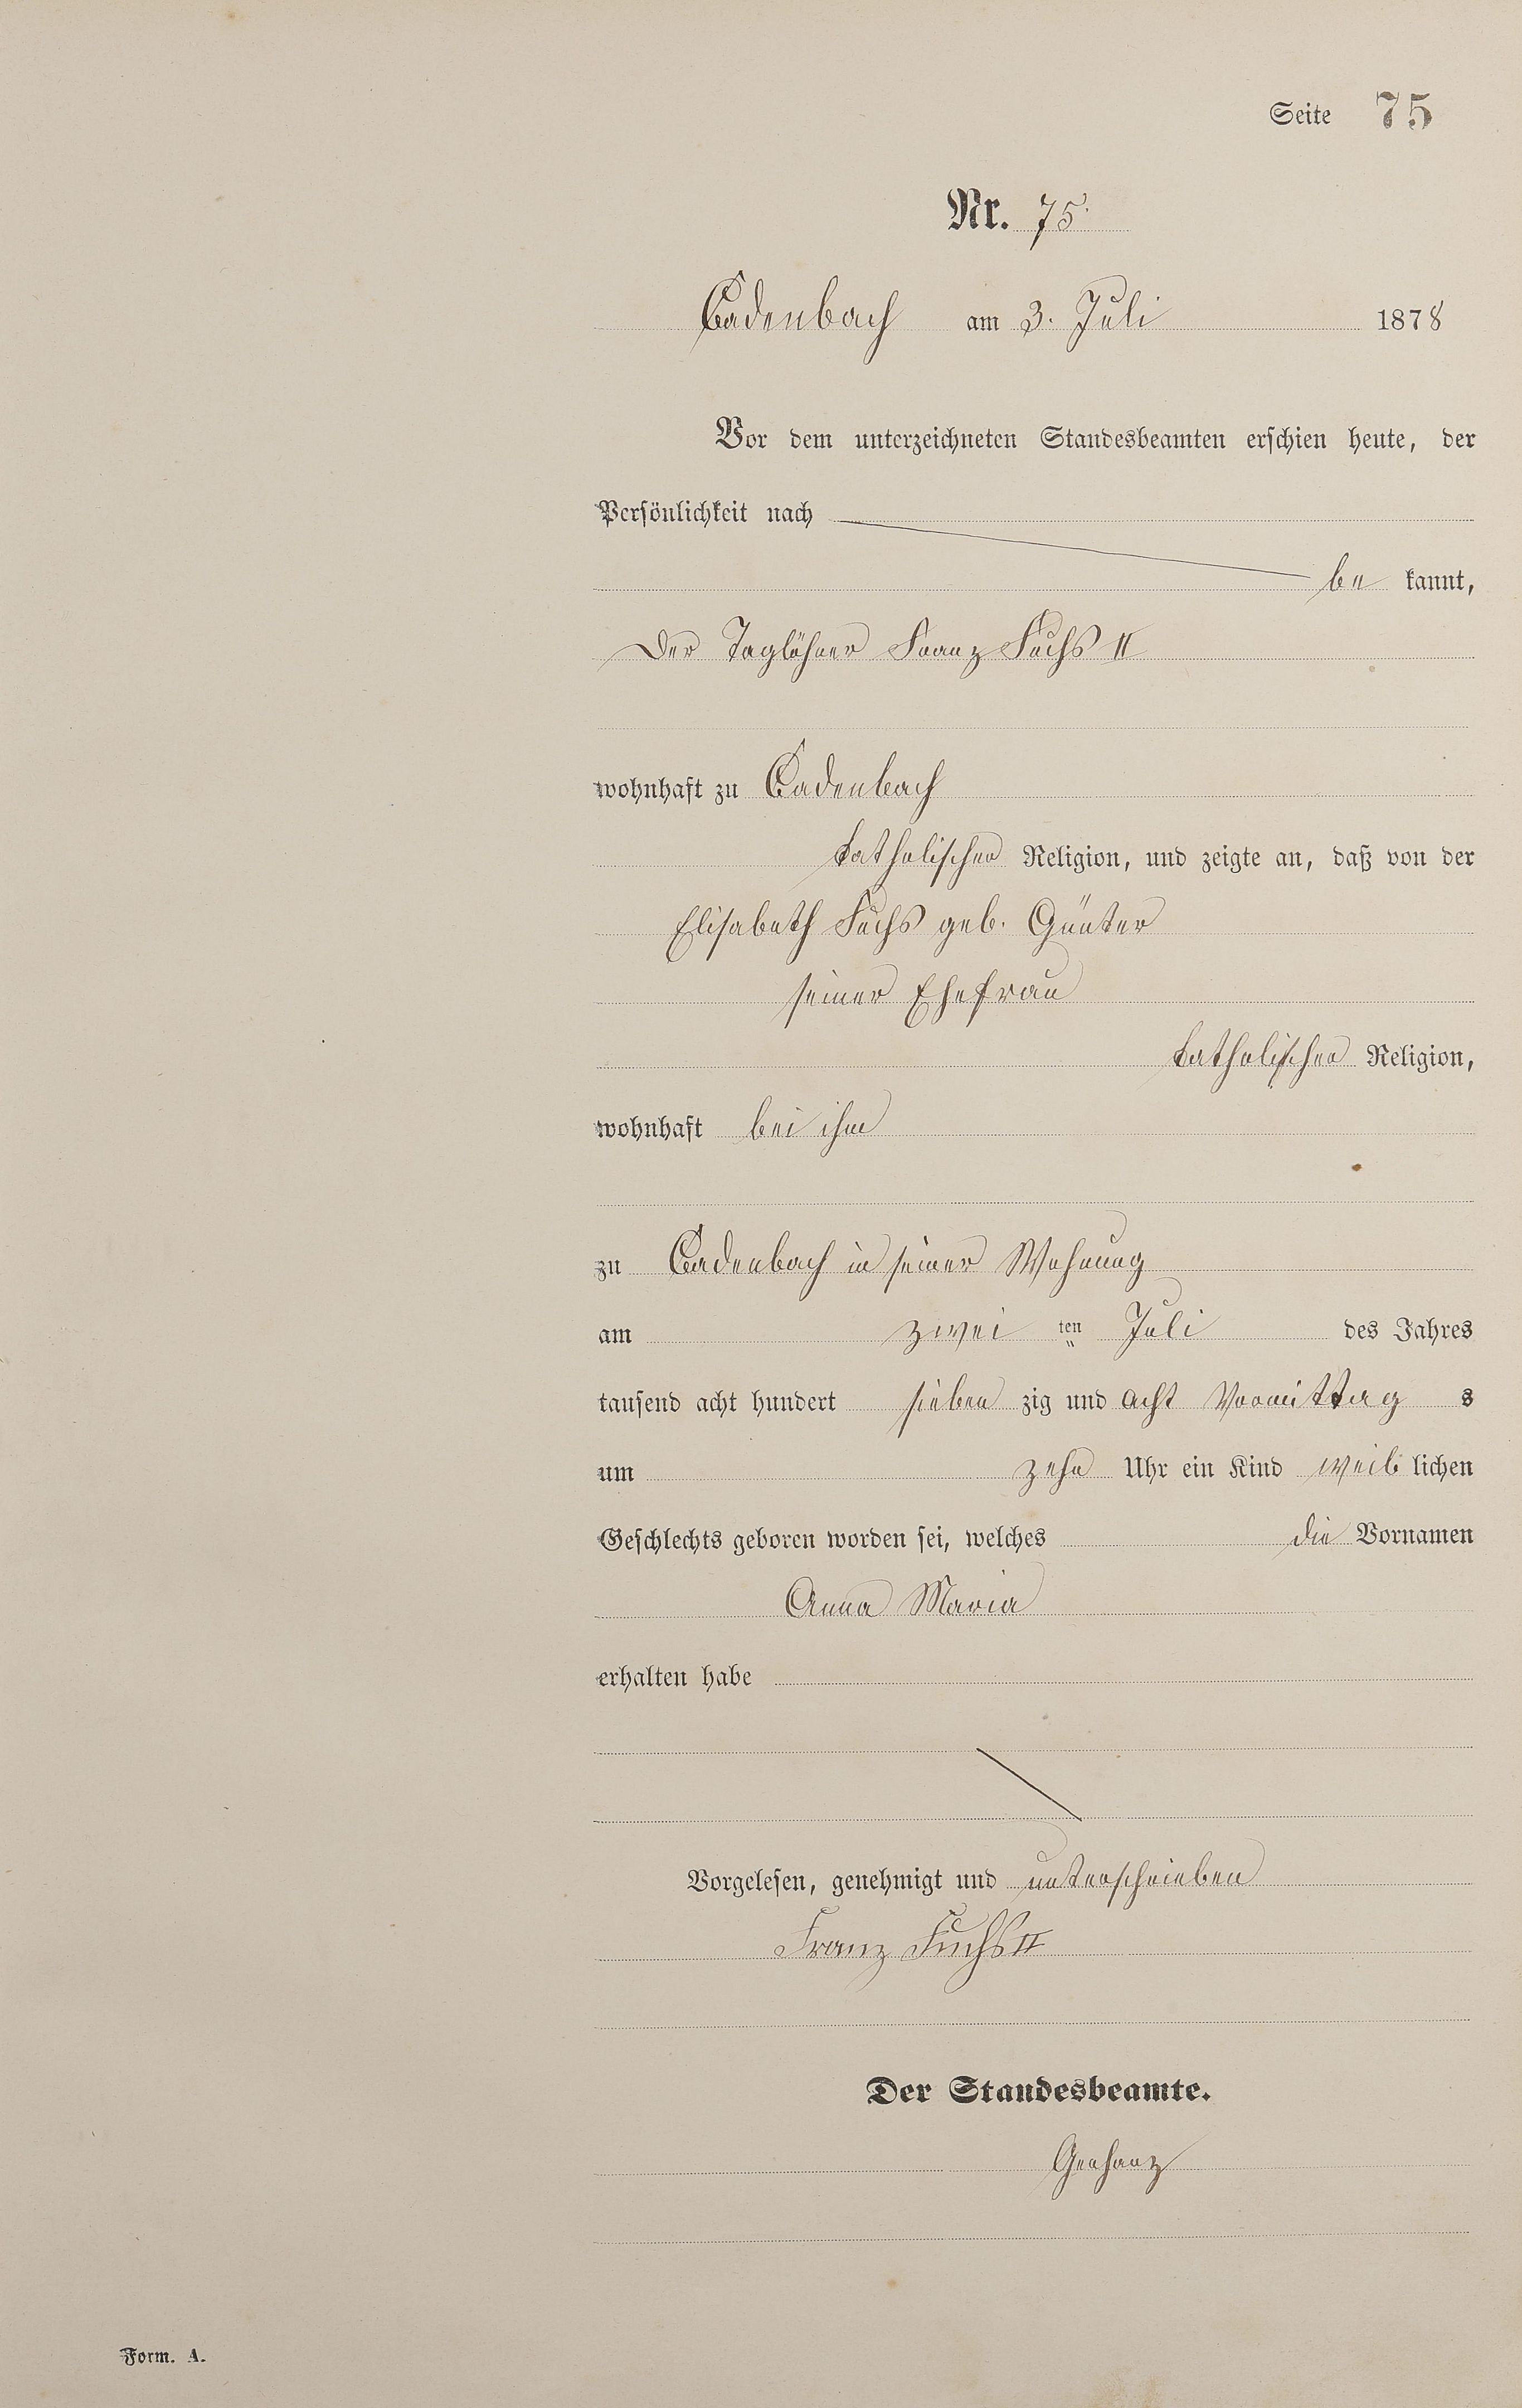 Seite 75
Nr. 75.
Cadenbach am 3. Juli 1878
Vor dem unterzeichneten Standesbeamten erschien heute, der
Persönlichkeit nach
be kannt,
der Taglöhner Franz Fuchs II
wohnhaft zu Cadenbach
katholischer Religion, und zeigte an, daß von der
Elisabeth Fuchs geb. Günter
seiner Ehefrau
katholischer Religion,
wohnhaft bei ihm
zu Cadenbach in seiner Wohnung
am zwei ten Juli des Jahres
tausend acht hundert sieben zig und acht Vormittag s
um zehn Uhr ein Kind weib lichen
Geschlechts geboren worden sei, welches die Vornamen
Anna Maria
erhalten habe
Vorgelesen, genehmigt und unterschrieben
Franz Fuchs II
Der Standesbeamte.
Gerhanz
Form. A.